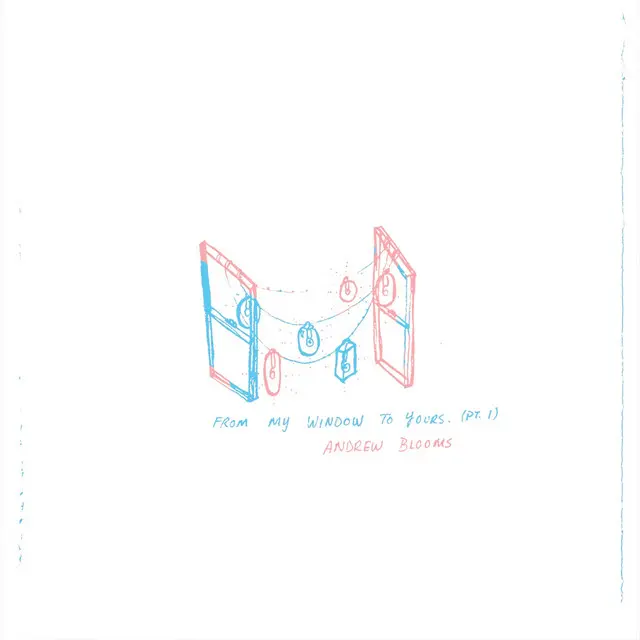 FROM MY WINDOW TO YOURS. (PT. 1)
ANDREW BLOOMS